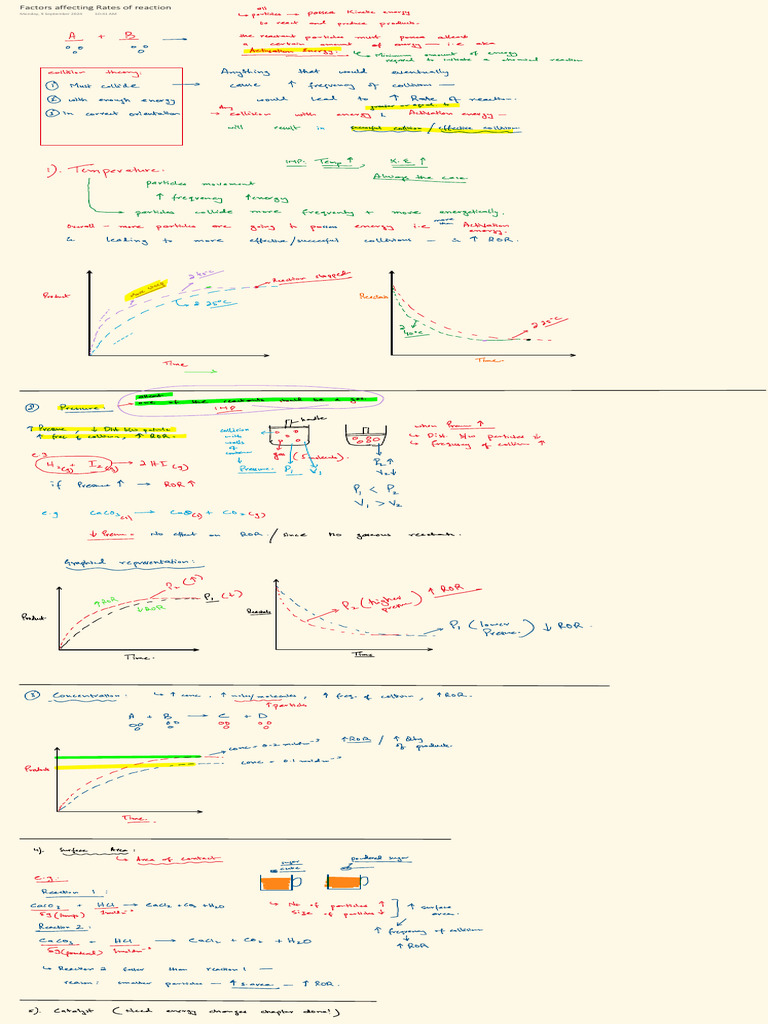 Factors affecting Rates of reaction
Monday, 9 September 2024 10:01 AM
all
particles → possess Kinetic energy
to react and produce products.
A + B
the reactant particles must possess atleast
a certain amount of energy — i.e aka
Activation Energy.
Minimum amount of energy
required to initiate a chemical reaction
collision theory:
① Must collide
② with enough energy
③ In correct orientation
Anything that would eventually
cause ↑ frequency of collisions —
would lead to ↑ Rate of reaction.
greater or equal to
Any
→ collision with energy ≥ Activation energy —
will result in successful collision / effective collision.
1). Temperature.
IMP. Temp ↑, K.E ↑
Always the case
particles movement
↑ frequency ↑ energy
particles collide more frequently + more energetically.
Overall - more particles are going to possess energy i.e more than Activation energy.
& leading to more effective/successful collisions — & ↑ ROR.
Product
@ 25°C
Reaction stopped
Time
Reactants
@ 25°C
Time.
② Pressure:
atleast
one of the reactants should be a gas
IMP
↑ Pressure, ↓ Dist b/w particles
↑ freq of collision, ↑ ROR.
e.g
H2(g) + I2(g) → 2HI(g)
if Pressure ↑ → ROR ↑
collision with walls of container
↓
Pressure.
handle
gas (5 molecules).
P1
V1
P2 ↑
V2 ↓
P1 < P2
V1 > V2
when Pressure ↑
↳ Dist. b/w particles ↓
↳ frequency of collision ↑
e.g CaCO3(s) → CaO(s) + CO2(g)
↓ Press. No effect on ROR / Since No gaseous reactants.
Graphical representation:
Product
↑ROR
↓ROR
P2(↑)
P1(↓)
Time.
Reactants
P2 (higher pressure) ↑ ROR
P1 (lower Pressure) ↓ ROR.
Time
③ Concentration. ↳ ↑ conc, ↑ moles/molecules, ↑ freq. of collision, ↑ ROR.
↑ particles
A + B → C + D
Product
conc = 0.2 moldm-3
↑ROR / ↑ Qty of products
conc = 0.1 moldm-3
Time.
4). Surface Area:
↳ Area of contact
sugar cube
powdered sugar
e.g.
Reaction 1:
CaCO3 + HCl → CaCl2 + CO2 + H2O
5g (lumps) 1moldm-3
↳ No of particles ↑
Size of particles ↓
↑ surface area.
↑ frequency of collision
↓
↑ ROR
Reaction 2:
CaCO3 + HCl → CaCl2 + CO2 + H2O
5g (powdered) 1moldm-3
↳ Reaction 2 faster than reaction 1 —
reason: smaller particles — ↑ s.area — ↑ ROR.
5). Catalyst (Need energy changes chapter done!)